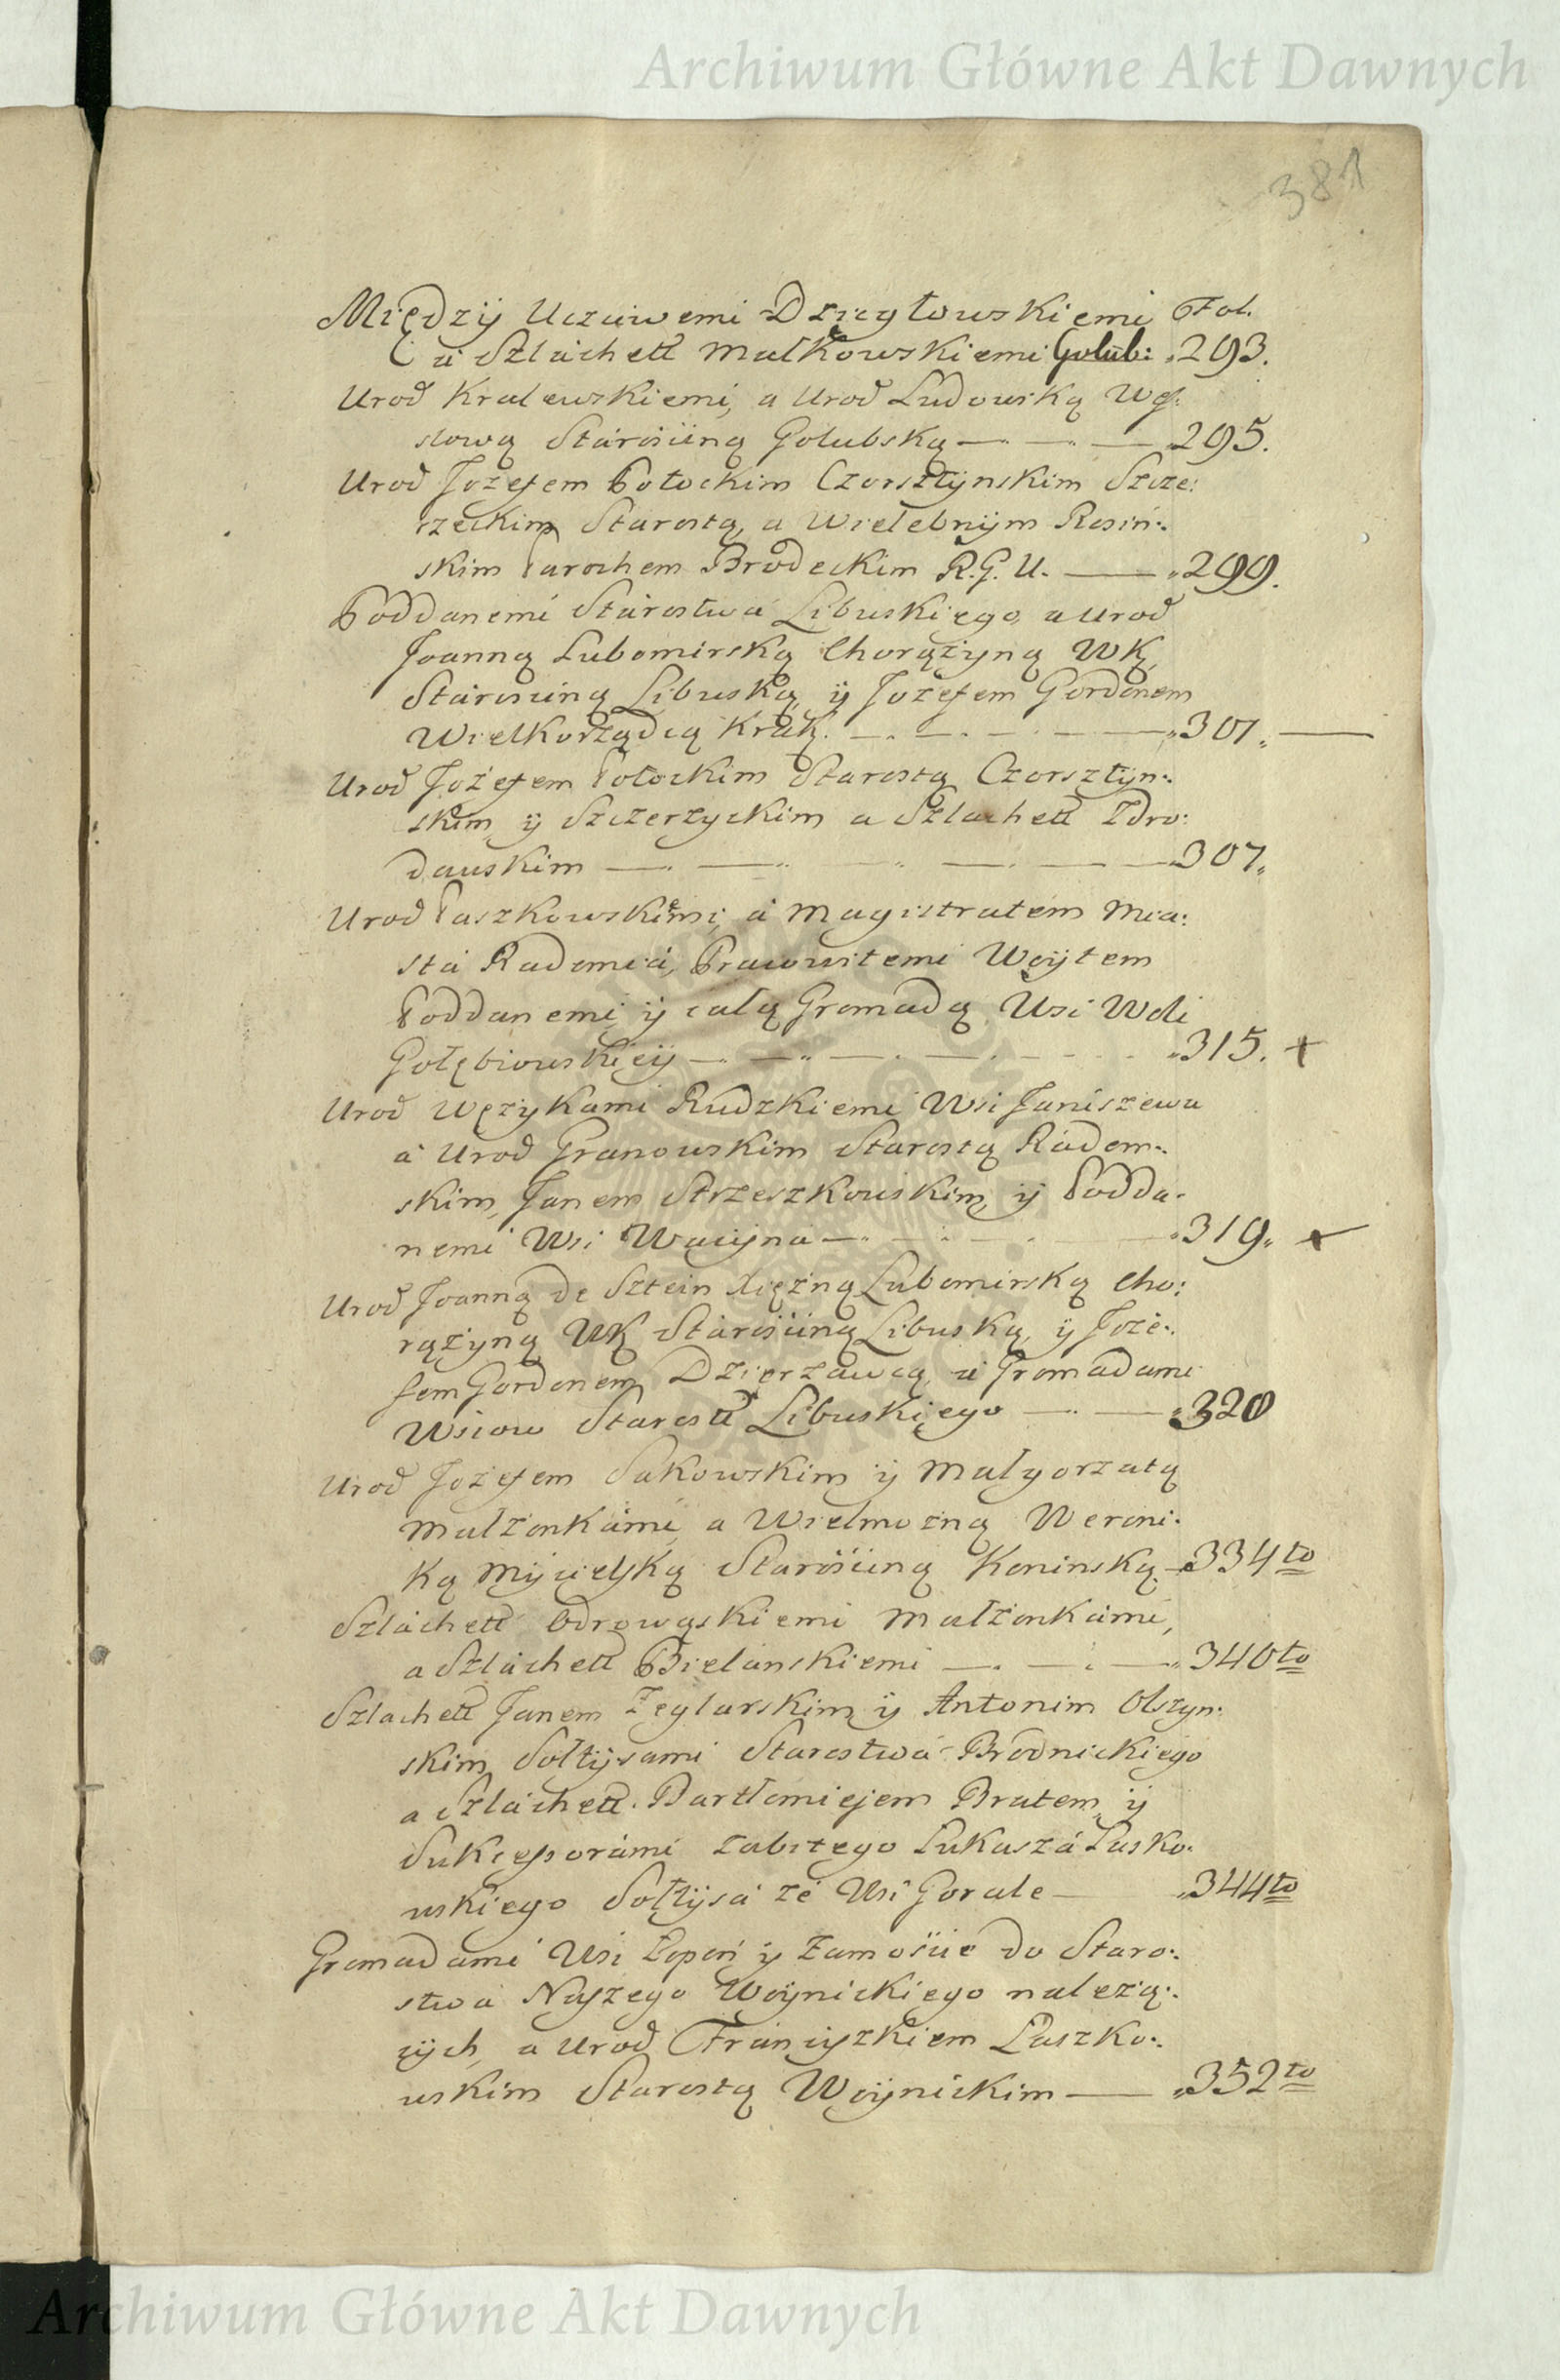 Archiwum Główne Akt Dawnych
381
Między Uczciwemi Dzięgłowskiemi Fol.
a Szlachett Małkowskiemi Golub: 293.
Urod Kralewskiemi, a Urod Ludowską Wę:
słową Starościną Golubską 295.
Urod Jozefem Potockim Czorsztynskim Szcze:
rzeckim Starostą, a Wielebnÿm Rosiń:
skim Parochem Brodeckim R. G. U. 299.
Poddanemi Starostwa Libuskiego, a Urod
Joanną Lubomirską Chorążyną WK,
Starosciną Libuską, ÿ Jozefem Gordonem
Wielkorządcą Krak. 301.
Urod Jozefem Potockim Starostą Czorsztÿn:
skim, ÿ Szczerzyckim a Szlachett Zdro:
dauskim 307.
Urod Paszkowskiemi, a Magistratem Mia:
sta Radomia, Prawowitemi Woÿtem
Poddanemi, ÿ całą Gromadą Wsi Woli
Gołębiowskieÿ 315. +
Urod Wężykami Rudzkiemi Wsi Janiszewa
a Urod Granowskim Starostą Radom:
skim, Janem Strzeszkowskim, ÿ Podda:
nemi Wsi Wacÿna 319. +
Urod Joanną de Sztein Xiężną Lubomirską Cho:
rążyną WK Starosciną Libuską, ÿ Joze:
fem Gordonem Dzierzawcą, a Gromadami
Wsiow Starostt Libuskiego 320
Urod Jozefem Sakowskim, ÿ Małgorzatą
Małzonkami, a Wielmozną Weroni:
ką Mÿcielską Starosciną Koninską 334to
Szlachett Odrowąskiemi Małzonkami,
a Szlachett Bielanskiemi 340to
Szlachett Janem Zeglarskim, ÿ Antonim Olszyn:
skim, Sołtÿsami Starostwa Brodnickiego
a Szlachett. Bartłomiejem Bratem, ÿ
Sukcessorami zabitego Łukasza Lasko:
wskiego Sołtÿsa ze Wsi Gorale 344to
Gromadami Wsi Łopoń ÿ Zamoście do Staro:
stwa Naszego Woÿnickiego nalezą:
cÿch, a Urod Franciszkiem Paszko:
wskim Starostą Woÿnickim 352to
Archiwum Główne Akt Dawnych